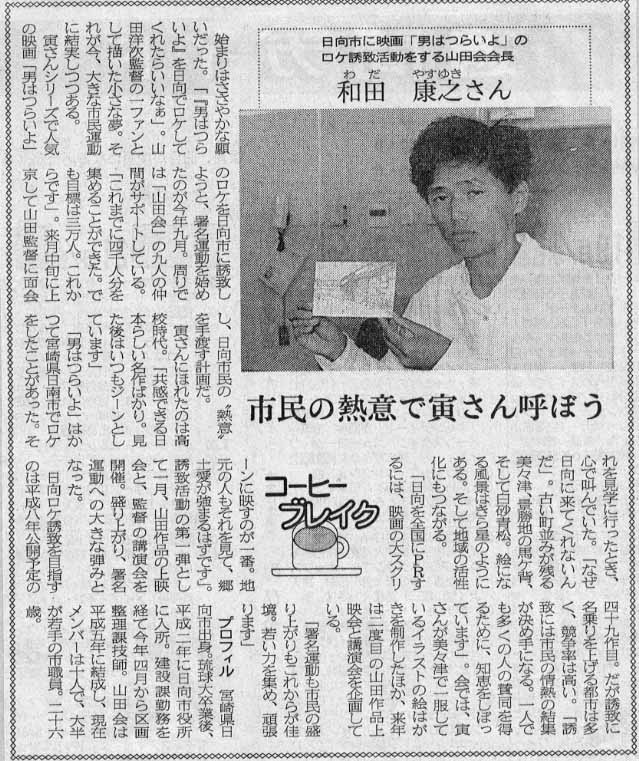 日向市に映画「男はつらいよ」の
ロケ誘致活動をする山田会会長
わだ　やすゆき
和田　康之さん
市民の熱意で寅さん呼ぼう
始まりはささやかな願
いだった。「『男はつら
いよ』を日向でロケして
くれたらいいなぁ」。山
田洋次監督の一ファンと
して描いた小さな夢。そ
れが今、大きな市民運動
に結実しつつある。
寅さんシリーズで人気
の映画「男はつらいよ」
のロケを日向市に誘致し
ようと、署名運動を始め
たのが今年九月。周りで
は「山田会」の九人の仲
間がサポートしている。
「これまでに四千人分を
集めることができた。で
も目標は三万人。これか
らです」。来月中旬に上
京して山田監督に面会
し、日向市民の〝熱意〟
を手渡す計画だ。
寅さんにほれたのは高
校時代。「共感できる日
本らしい名作ばかり。見
た後はいつもジーンとし
ています」
「男はつらいよ」はか
つて宮崎県日南市でロケ
をしたことがあった。そ
れを見学に行ったとき、
心で叫んでいた。「なぜ
日向に来てくれないん
だ」。古い町並みが残る
美々津、景勝地の馬ケ背、
そして白砂青松。絵にな
る風景はきら星のように
ある。そして地域の活性
化にもつながる。
「日向を全国にPRす
るには、映画の大スクリ
ーンに映すのが一番。地
元の人もそれを見て、郷
土愛が強まるはずです」。
誘致活動の第一弾とし
て一月、山田作品の上映
会と、監督の講演会を
開催。盛り上がり、署名
運動への大きな弾みと
なった。
日向ロケ誘致を目指す
のは平成八年公開予定の
コーヒーブレイク
四十九作目。だが誘致に
名乗りを上げる都市は多
く、競争率は高い。「誘
致には市民の情熱の結集
が決め手になる。一人で
も多くの人の賛同を得
るために、知恵をしぼっ
ています」。会では、寅
さんが美々津で一服して
いるイラストの絵はが
きを制作したほか、来年
は二度目の山田作品上
映会と講演会を企画して
いる。
「署名運動も市民の盛
り上がりもこれからが佳
境。若い力を集め、頑張
ります」
プロフィル　宮崎県日
向市出身。琉球大卒業後、
平成二年に日向市役所
に入所。建設課勤務を
経て今年四月から区画
整理課技師。山田会は
平成五年に結成し、現在
メンバーは十人で、大半
が若手の市職員。二十六
歳。